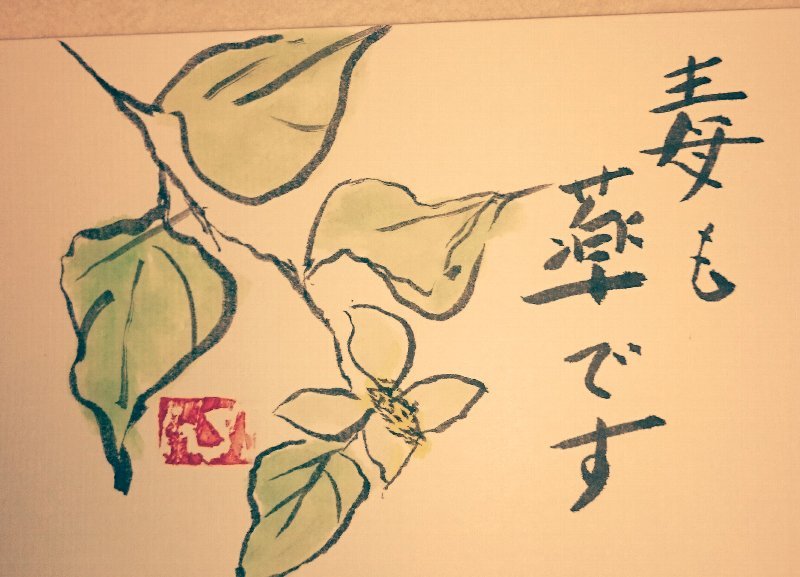 毒も
薬です